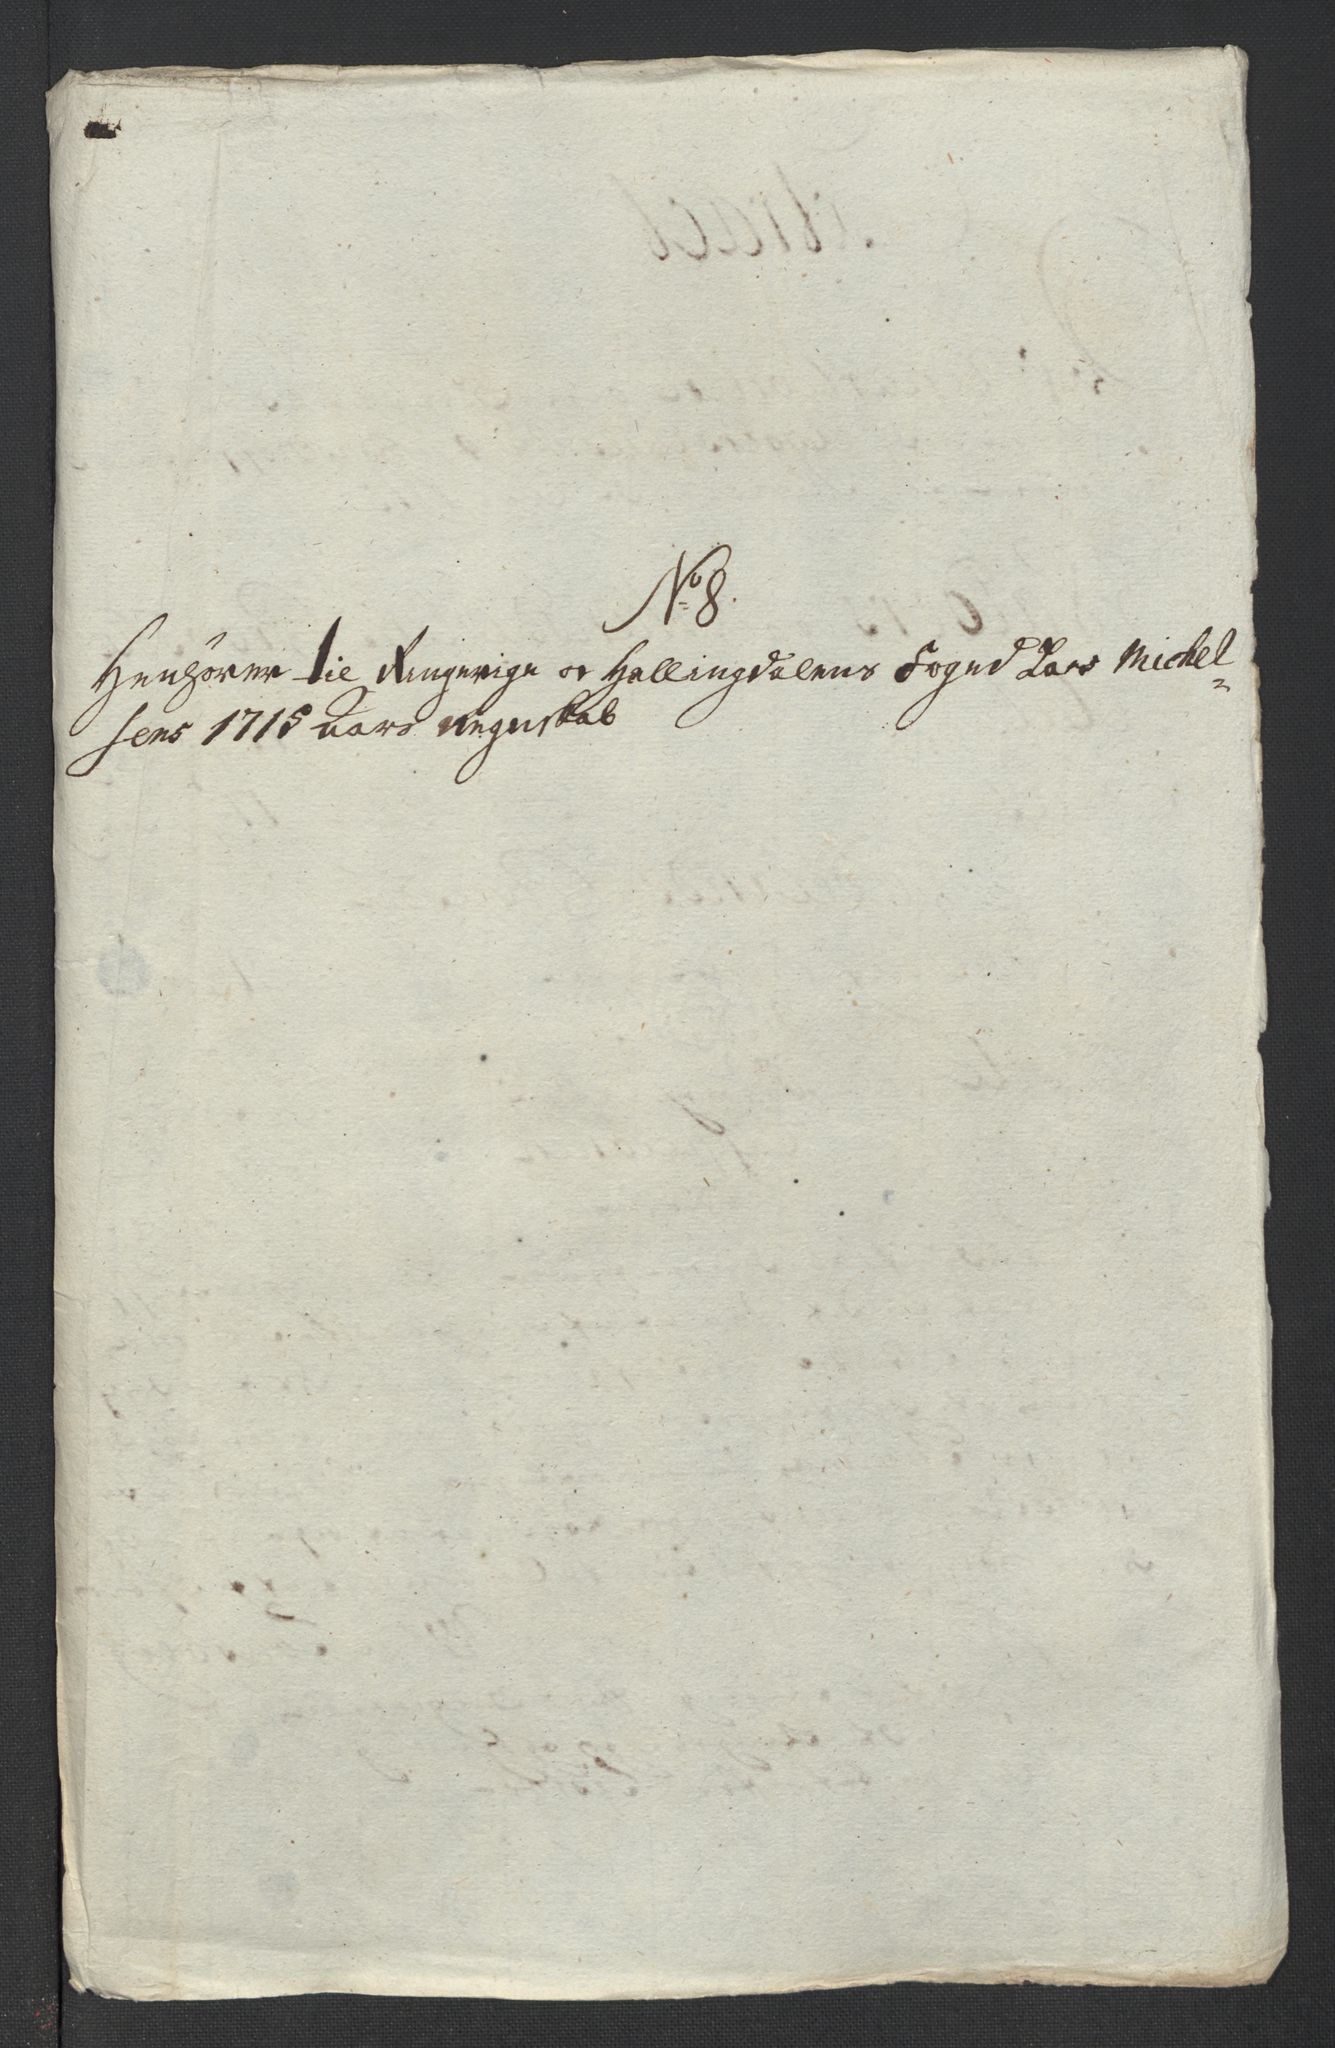 No 8.
Henhörer til Ringerige og Hallingdalens Foged Lars Michel=
sens 1715 aars regnskab